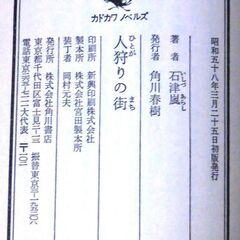 カドカワ ノベルズ
昭和五十八年三月二十五日初版発行
著者 石津嵐
いしづ あらし
発行者 角川春樹
人狩りの街
ひとが まち
印刷所 新興印刷株式会社
製本所 株式会社宮田製本所
装丁者 岡村元夫
発行所 株式会社角川書店
東京都千代田区富士見二ー十三
振替東京三ー一九五二〇八
電話東京三六五ー七一一一大代表
〒一〇二